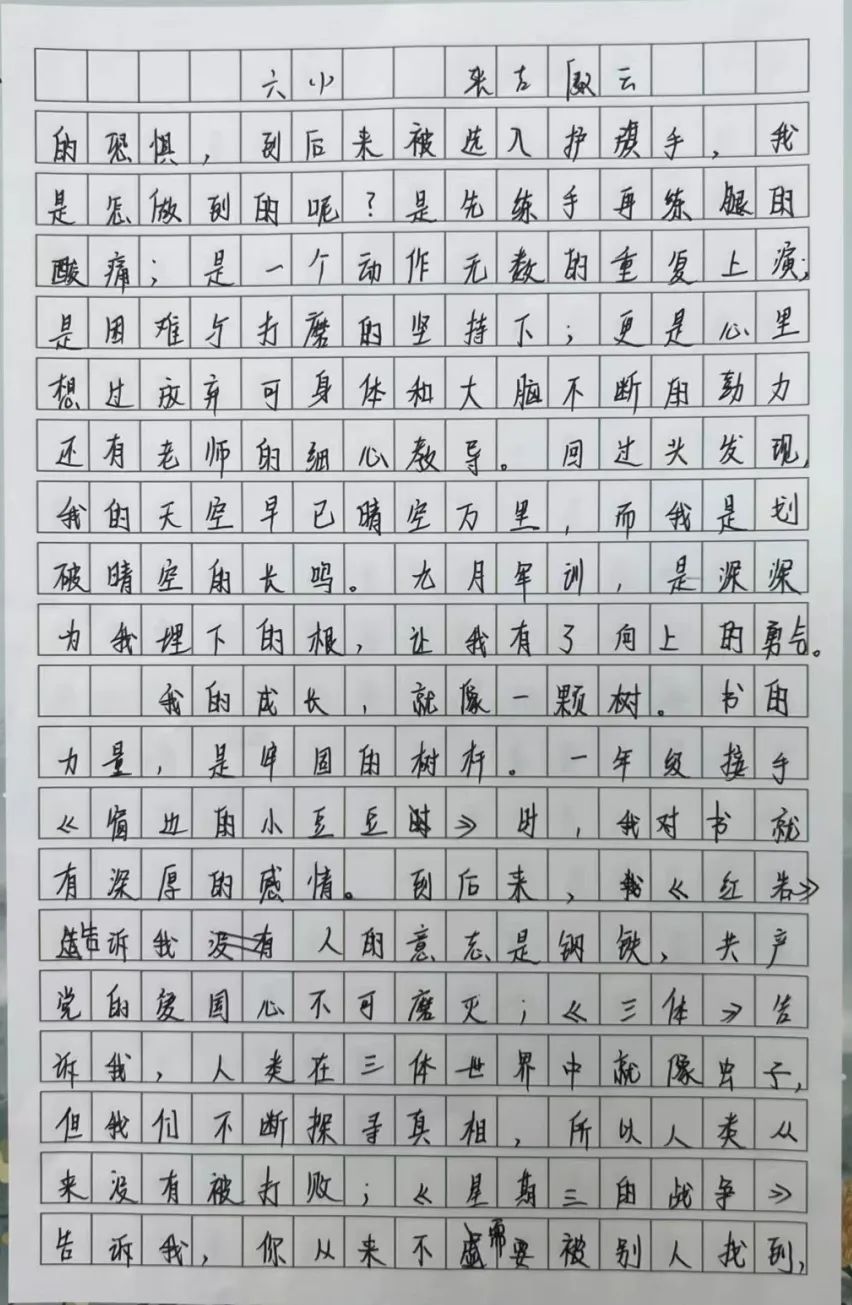 六小 来古殿云
的恐惧，到后来被选入护旗手，我
是怎做到的呢？是先练手再练腿的
酸痛；是一个动作无数的重复上演；
是困难与打磨的坚持下；更是心里
想过放弃可身体和大脑不断的动力
还有老师的细心教导。回过头发现，
我的天空早已晴空万里，而我是划
破晴空的长鸣。九月军训，是深深
为我埋下的根，让我有了向上的勇气。
我的成长，就像一颗树。书的
力量，是牢固的树杆。一年级接手
《窗边的小豆豆》时，我对书就
有深厚的感情。到后来，《红岩》
告诉我人的意志是钢铁，共产
党的爱国心不可磨灭；《三体》告
诉我，人类在三体世界中就像虫子，
但我们不断探寻真相，所以人类从
来没有被打败；《星期三的战争》
告诉我，你从来不需要被别人找到，